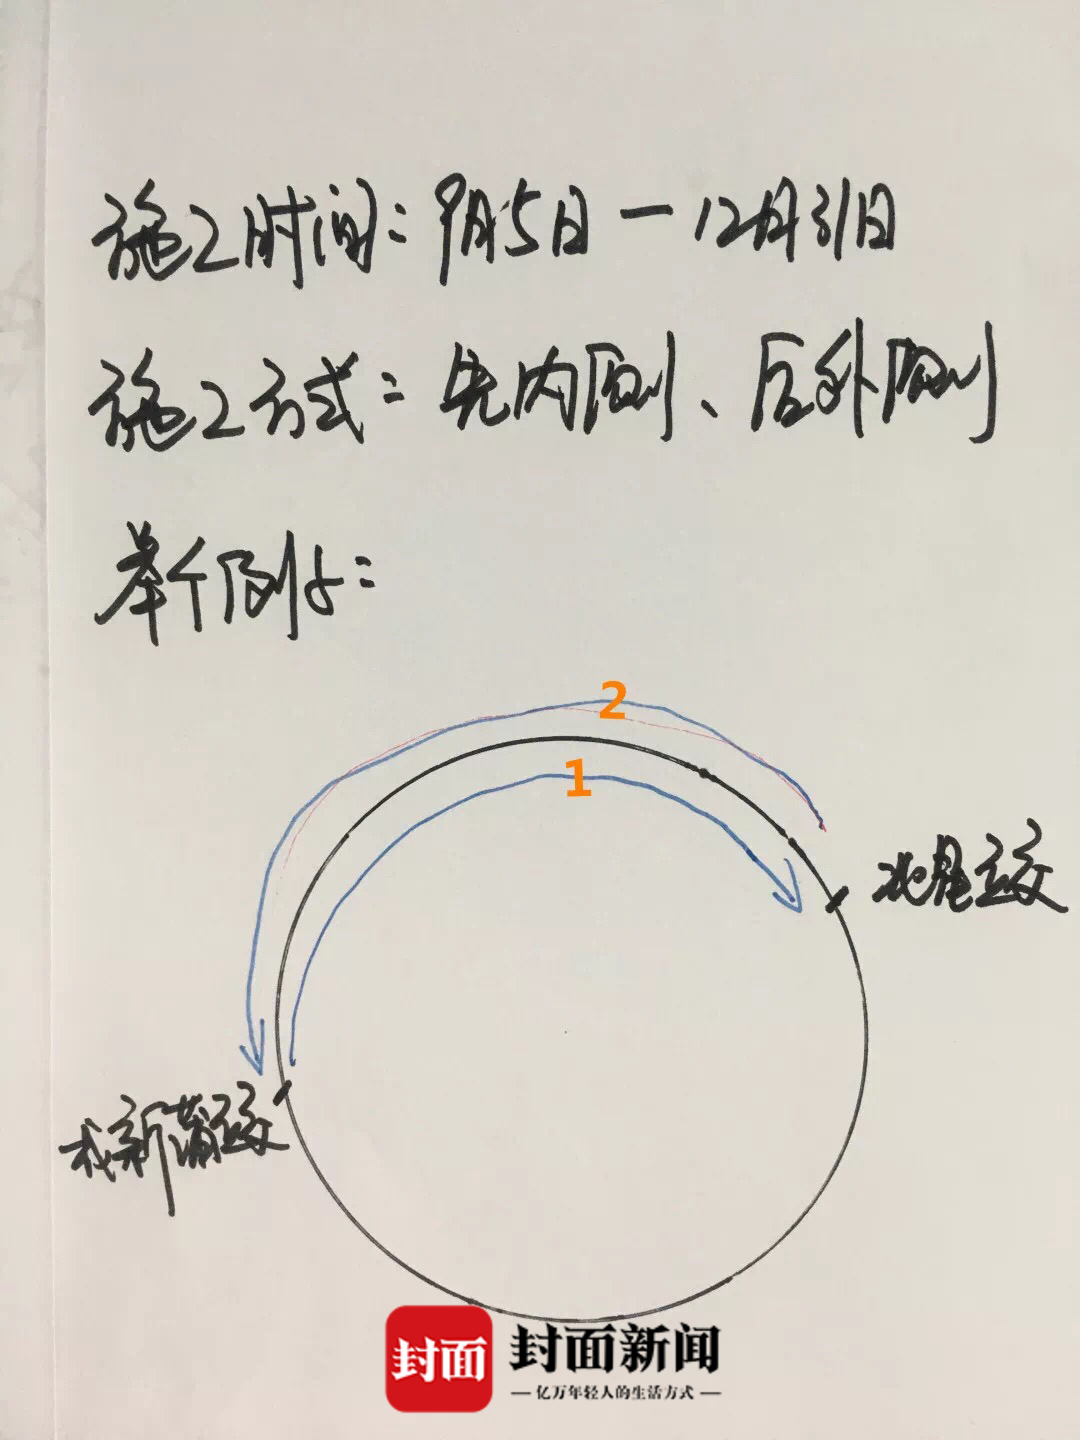 施工时间：9月5日—12月31日
施工方式：先内侧、后外侧
举个例子：
2
1
北星立交
成新蒲立交
封面
封面新闻
—亿万年轻人的生活方式—